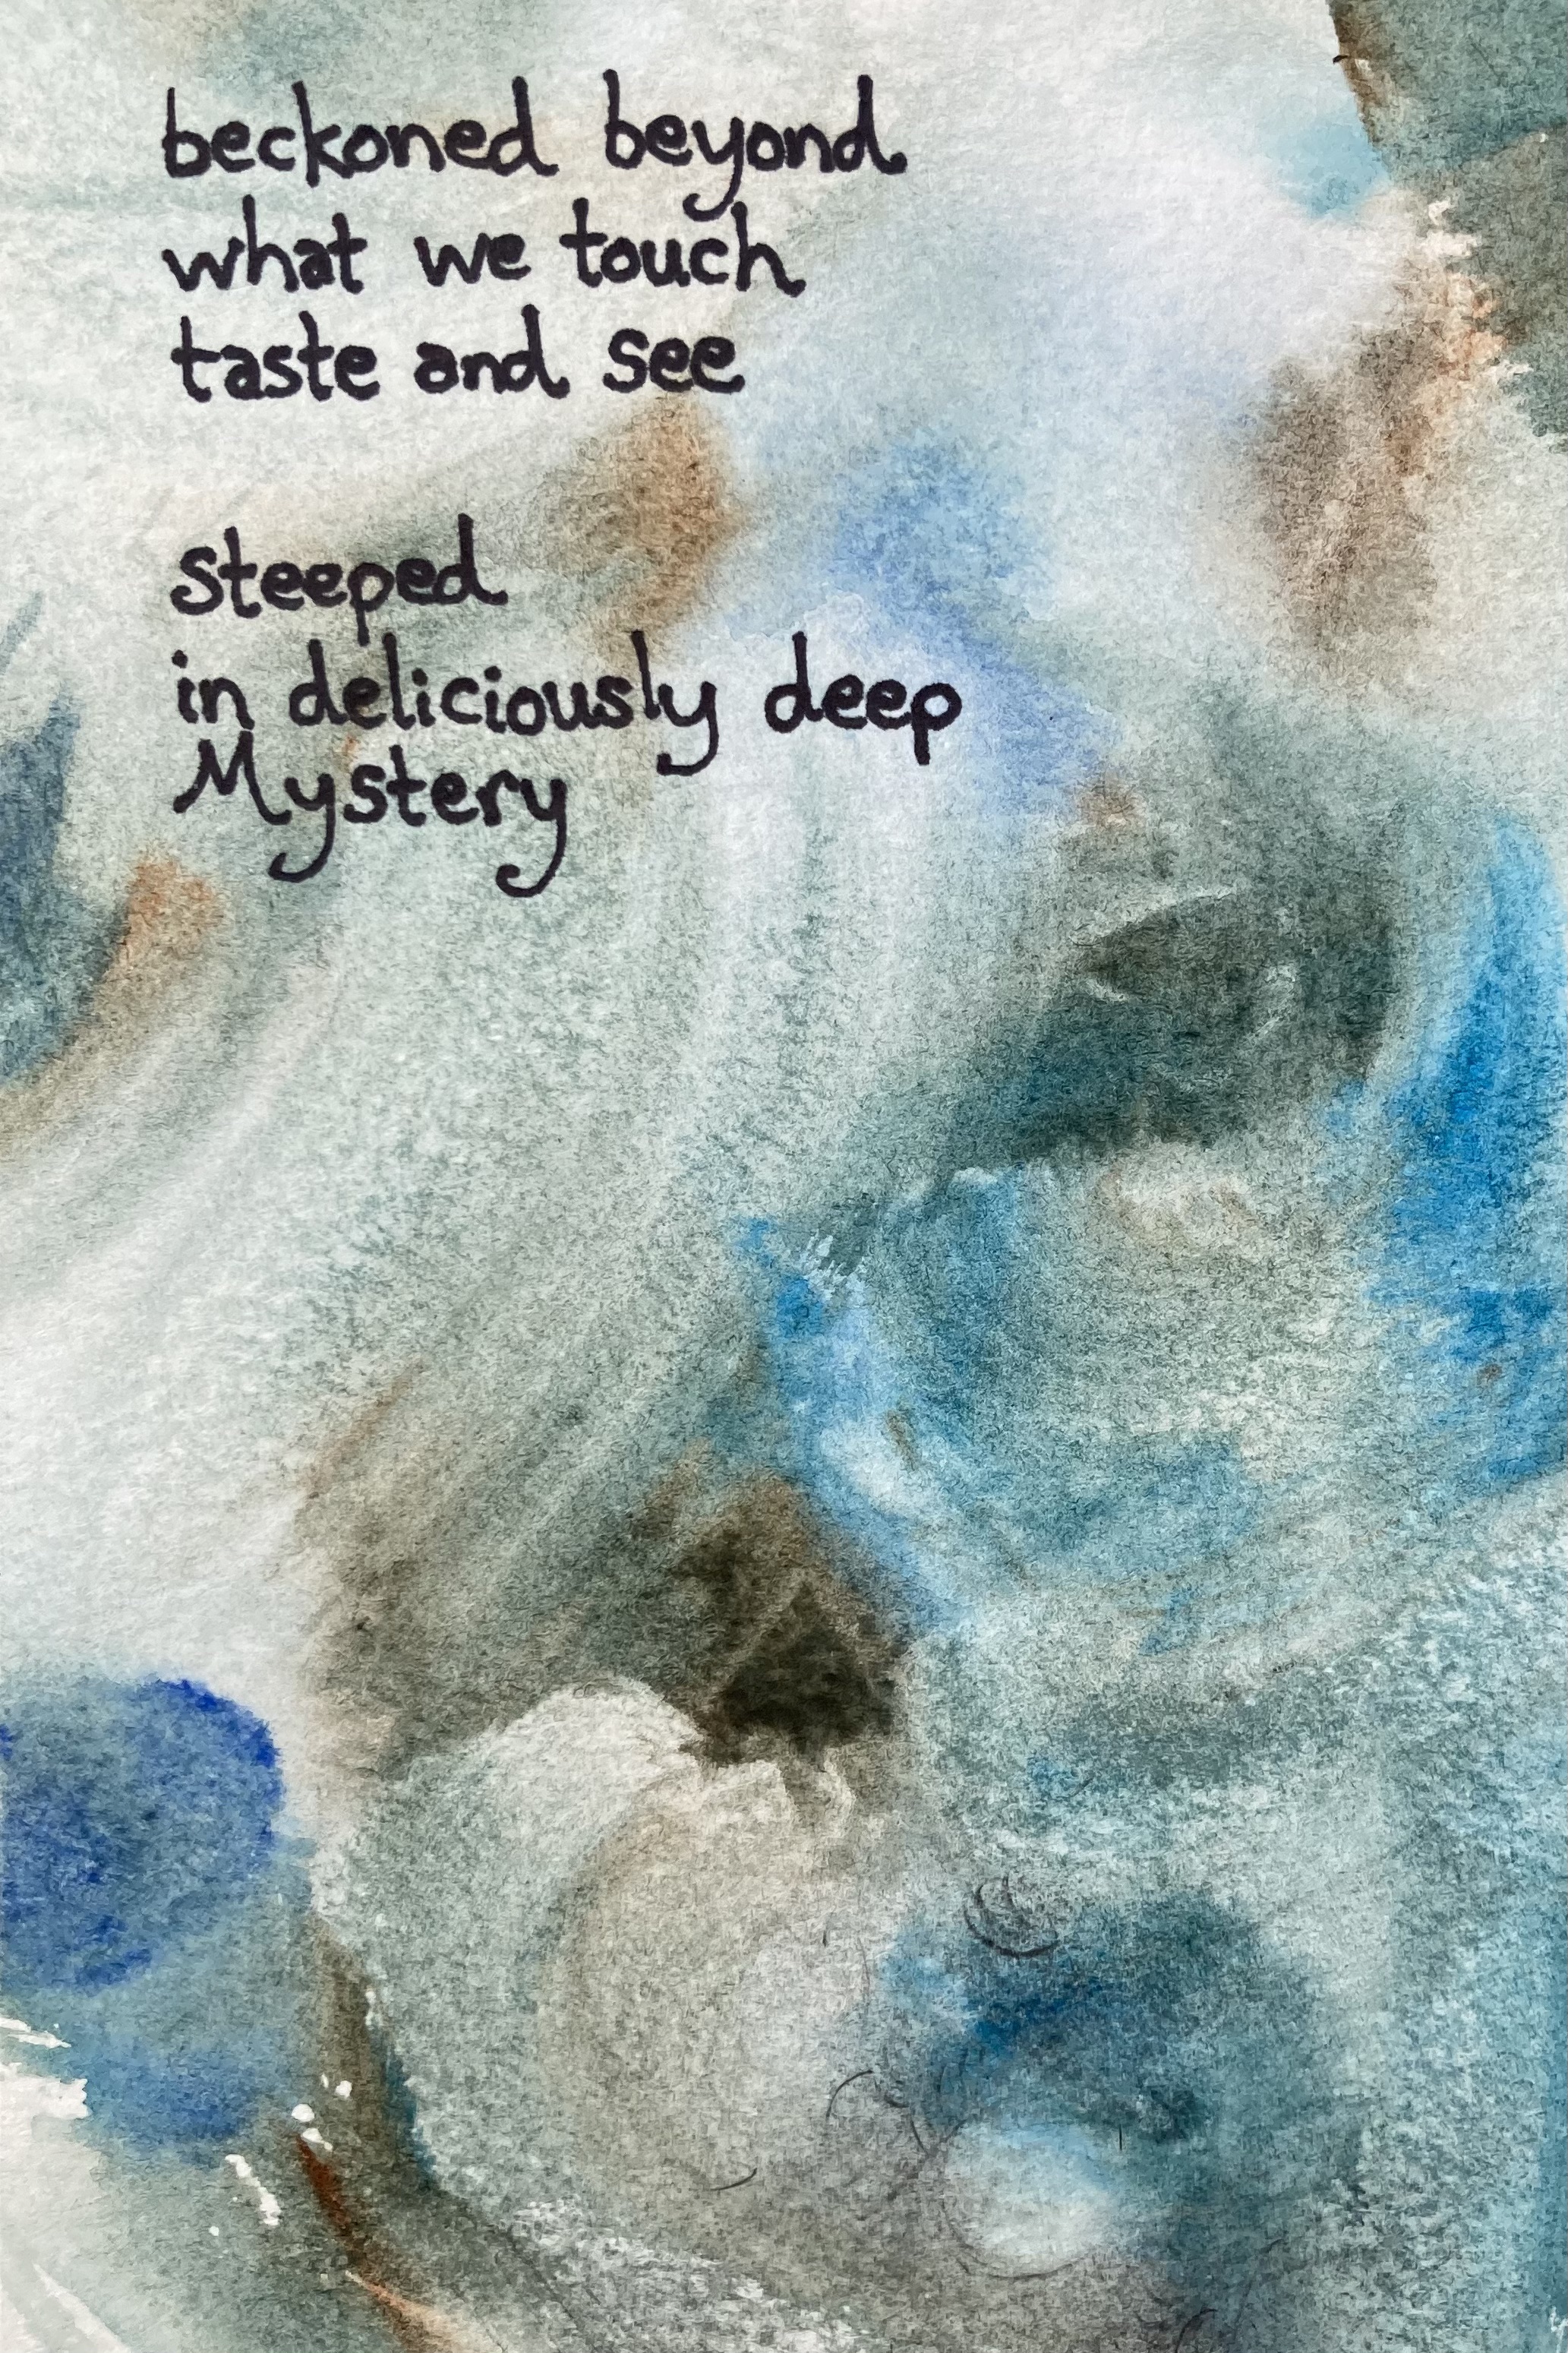 beckoned beyond
what we touch
taste and see
steeped
in deliciously deep
Mystery